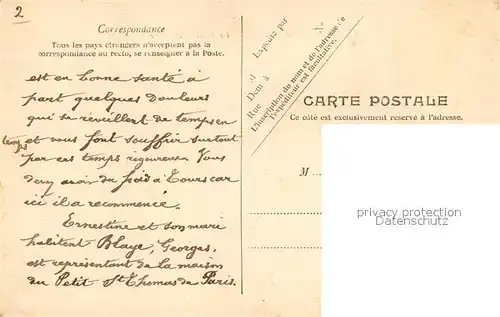 2
Correspondance
Tous les pays étrangers n'acceptent pas la
correspondance au recto, se renseigner à la Poste.
est en bonne santé à
part quelques douleurs
qui se réveillent de temps en
temps et vous font souffrir surtout
par ces temps rigoureux. Vous
devez avoir du froid à Tours car
ici il a recommencé.
Ernestine et son mari
habitent Blaye, Georges
est représentant de la maison
du Petit St Thomas de Paris.
Expédié par
Dem à
Rue
L'inscription du nom et de l'adresse de
l'expéditeur est facultative.
CARTE POSTALE
Ce côté est exclusivement réservé à l'adresse.
M
privacy protection
Datenschutz